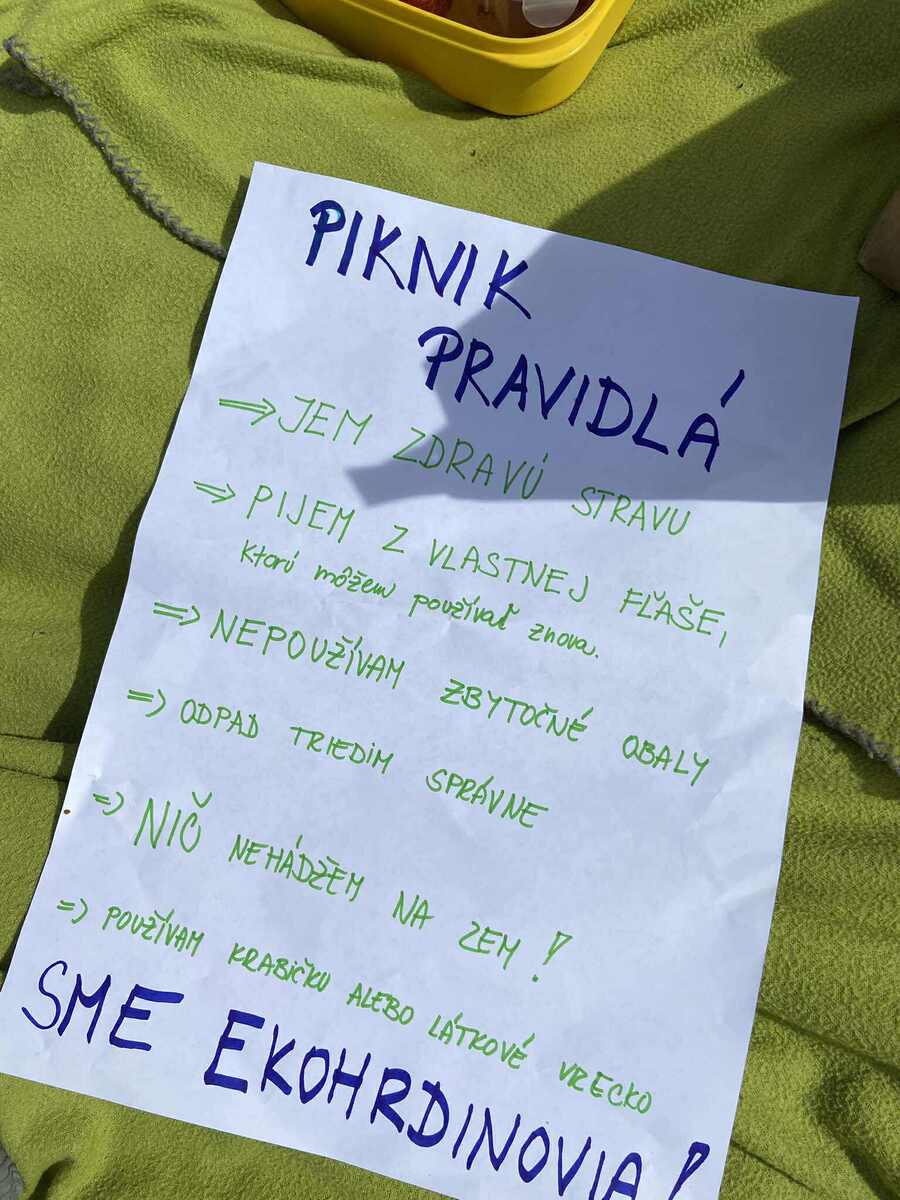 PIKNIK
PRAVIDLÁ
⇒ JEM ZDRAVÚ STRAVU
⇒ PIJEM Z VLASTNEJ FĽAŠE,
ktorú môžem používať znova.
⇒ NEPOUŽÍVAM ZBYTOČNÉ OBALY
⇒ ODPAD TRIEDIM SPRÁVNE
⇒ NIČ NEHÁDŽEM NA ZEM!
⇒ POUŽÍVAM KRABIČKU ALEBO LÁTKOVÉ VRECKO
SME EKOHRDINOVIA!